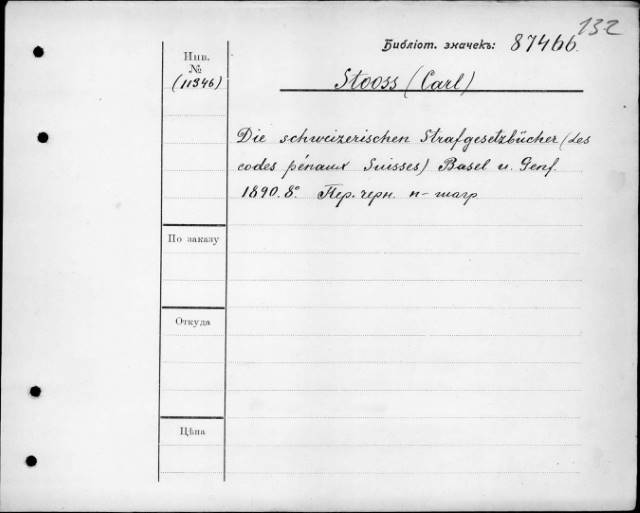 132
Библіот. значекъ: 87466.
Инв.
№
(11346)
Stooss (Carl)
Die schweizerischen Strafgesetzbücher (Les
codes pénaux Suisses) Basel u. Genf.
1890. 8°. Пер. черн. п-шагр.
По заказу
Откуда
Цѣна